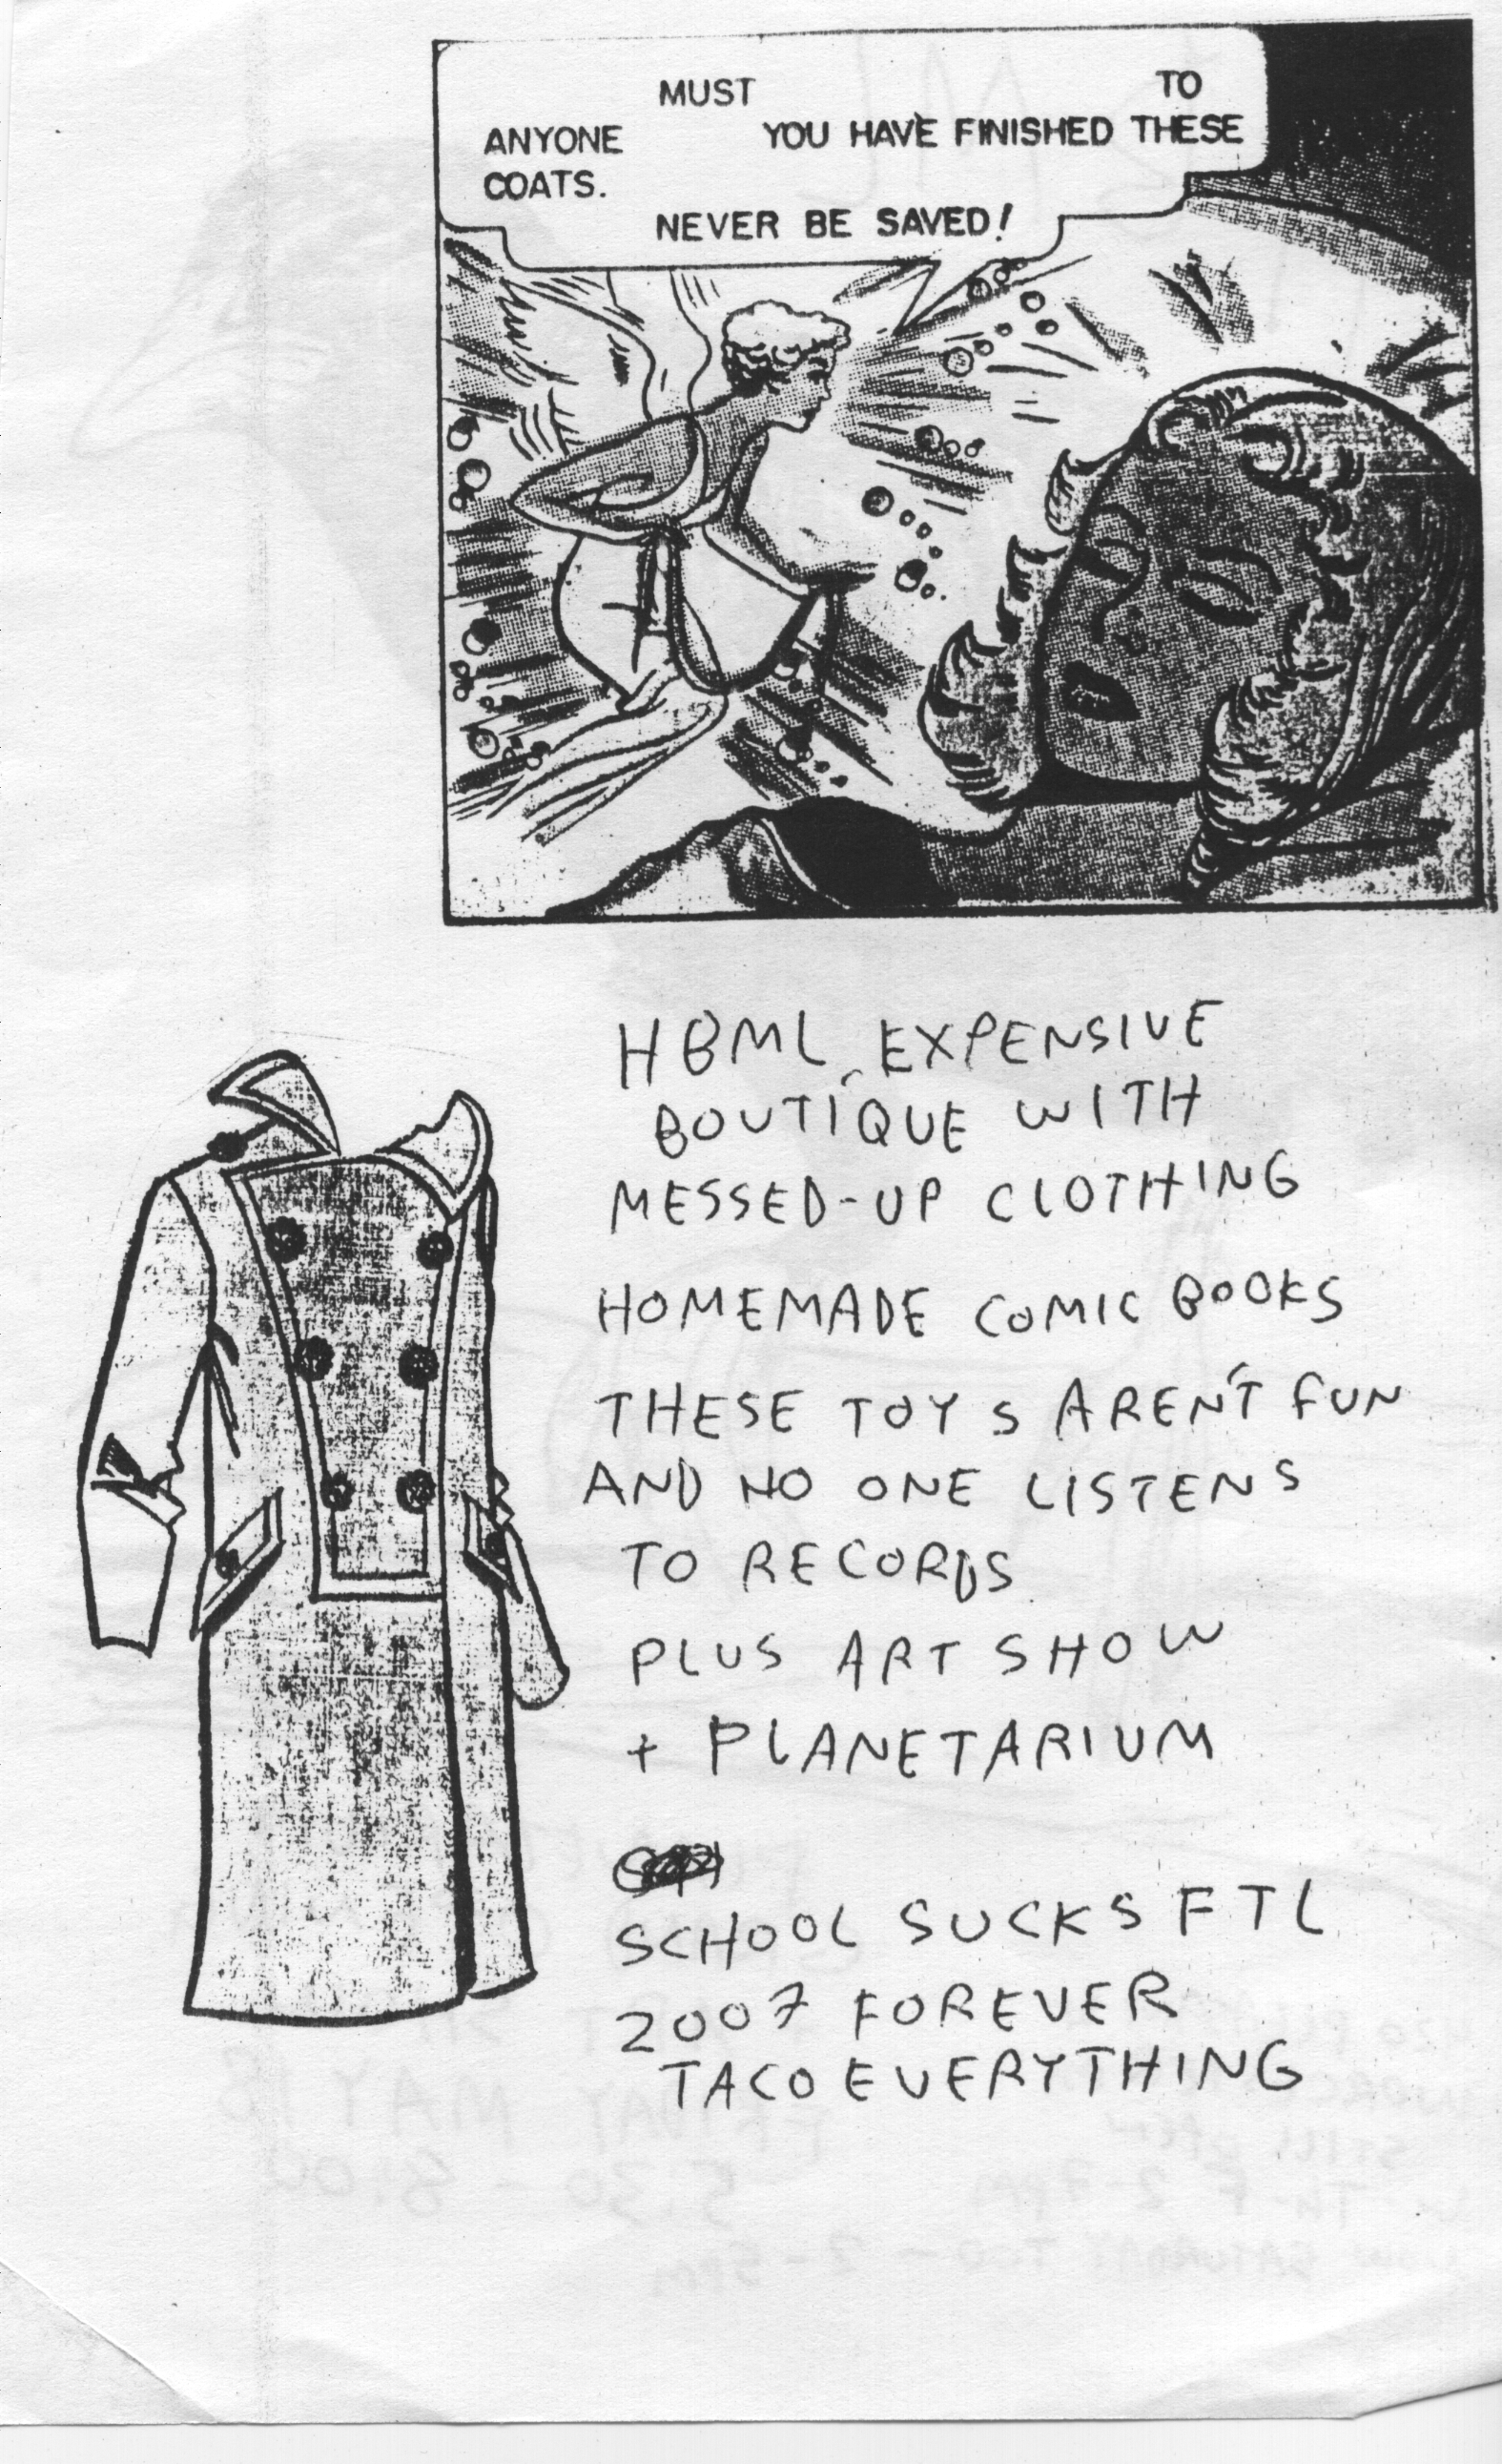 MUST TO
ANYONE YOU HAVE FINISHED THESE
COATS.
NEVER BE SAVED!
HBML EXPENSIVE
BOUTIQUE WITH
MESSED-UP CLOTHING
HOMEMADE COMIC BOOKS
THESE TOYS AREN'T FUN
AND NO ONE LISTENS
TO RECORDS
PLUS ART SHOW
+ PLANETARIUM
SCHOOL SUCKS FTL
2007 FOREVER
TACO EVERYTHING